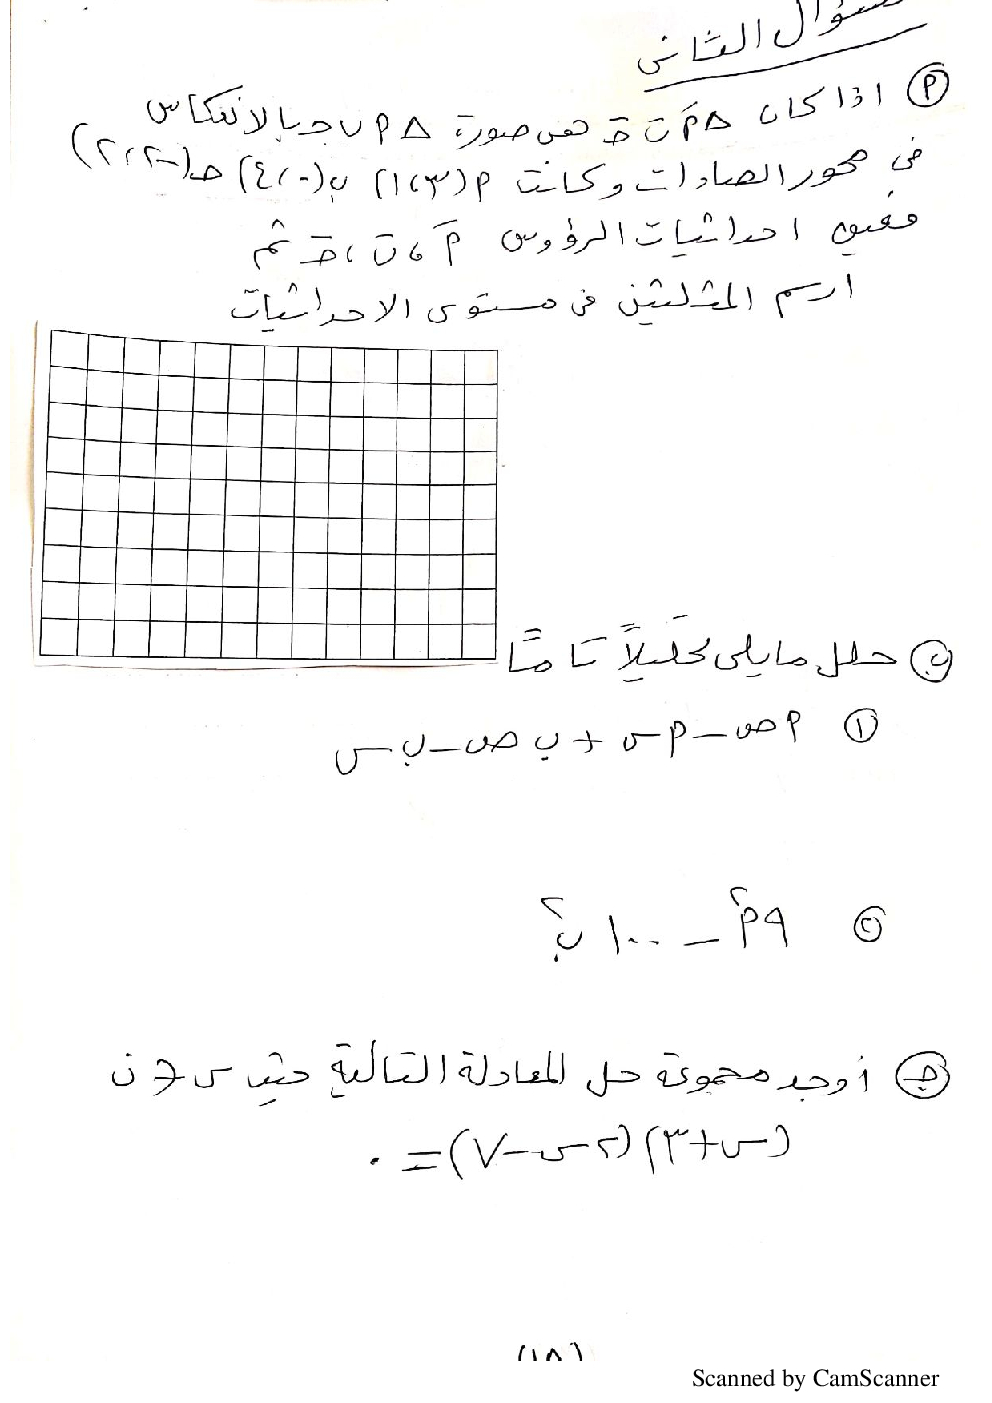 السؤال الثانى
(أ) اذا كان △ أَ بَ جَ هى صورة △ أ ب جـ بالانعكاس
فى محور الصادات وكانت أ (٣،١) ب (٠،٤) جـ (-٢،٢)
فعين احداثيات الرؤوس أَ ، بَ ، جَ ثم
ارسم المثلثين فى مستوى الاحداثيات
(ب) حلل مايلى تحليلاً تاماً
(١) أ ص - أ س + ب ص - ب س
(٢) ٩ أ² - ١٠٠ ب²
(جـ) أوجد مجموعة حل المعادلة التالية حيث س ∈ ن
(س + ٣)(٢ س - ٧) = ٠
(١٨)
Scanned by CamScanner